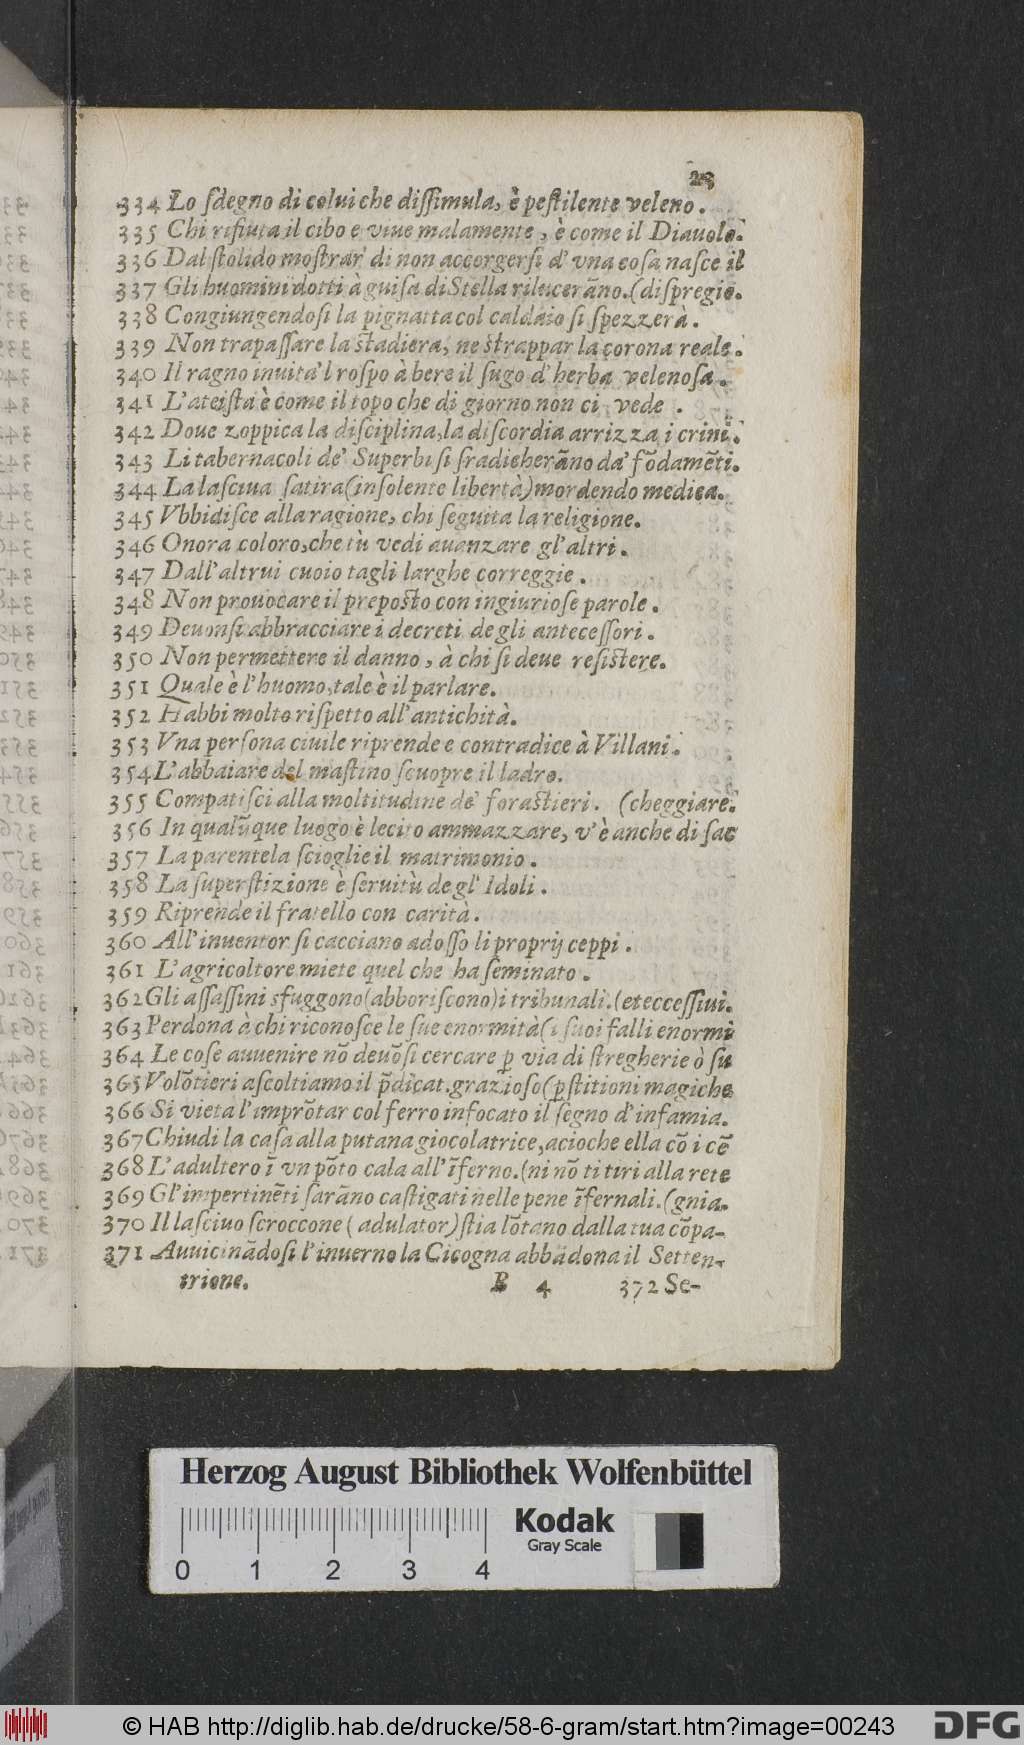 23
334 Lo ſdegno di colui che diſſimula, è peſtilente veleno.
335 Chi rifiuta il cibo e viue malamente, è come il Diauolo.
336 Dal ſtolido moſtrar di non accorgerſi d' vna coſa naſce il
337 Gli huomini dotti à guiſa di Stella rilucerāno.(diſpregio.
338 Congiungendoſi la pignatta col caldaio ſi ſpezzerà.
339 Non trapaſſare la ſtadiera, ne ſtrappar la corona reale.
340 Il ragno inuita'l roſpo à bere il ſugo d' herba velenoſa.
341 L'ateiſta è come il topo che di giorno non ci vede .
342 Doue zoppica la diſciplina, la diſcordia arrizza i crini.
343 Li tabernacoli de' Superbi ſi ſradicherāno da' fōdamēti.
344 La laſciua ſatira (inſolente libertà) mordendo medica.
345 Vbbidiſce alla ragione, chi ſeguita la religione.
346 Onora coloro, che tù vedi auanzare gl'altri.
347 Dall'altrui cuoio tagli larghe correggie.
348 Non prouocare il prepoſto con ingiurioſe parole.
349 Deuonſi abbracciare i decreti degli anteceſſori.
350 Non permettere il danno, à chi ſi deue reſiſtere.
351 Quale è l'huomo, tale è il parlare.
352 Habbi molto riſpetto all'antichità.
353 Vna perſona ciuile riprende e contradice à Villani.
354 L'abbaiare del maſtino ſcuopre il ladro.
355 Compatiſci alla moltitudine de' foraſtieri. (cheggiare.
356 In qualūque luogo è lecito ammazzare, v'è anche di ſac
357 La parentela ſcioglie il matrimonio.
358 La ſuperſtizione è ſeruitù degl' Idoli.
359 Riprende il fratello con carità.
360 All'inuentor ſi cacciano adoſſo li proprij ceppi.
361 L'agricoltore miete quel che ha ſeminato.
362 Gli aſſaſſini sfuggono (abboriſcono) i tribunali. (et eccessiui.
363 Perdona à chi riconoſce le ſue enormità (i ſuoi falli enormi
364 Le coſe auuenire nō deuōſi cercare ꝑ via di ſtregherie ò ſu
365 Volōtieri aſcoltiamo il p̄dicat. grazioſo (ꝑſtitioni magiche
366 Si vieta l'imprōtar col ferro infocato il ſegno d'infamia.
367 Chiudi la caſa alla putana giocolatrice, acioche ella cō i cē
368 L'adultero ī vn pōto cala all'īferno. (ni nō ti tiri alla rete
369 Gl'impertinēti ſarāno caſtigati nelle pene īfernali. (gnia.
370 Il laſciuo ſcroccone (adulator) ſtia lōtano dalla tua cōpa-
371 Auuicinādoſi l'inuerno la Cicogna abbādona il Setten-
trione. B 4 372 Se-
Herzog August Bibliothek Wolfenbüttel
0 1 2 3 4
Kodak
Gray Scale
© HAB http://diglib.hab.de/drucke/58-6-gram/start.htm?image=00243
DFG